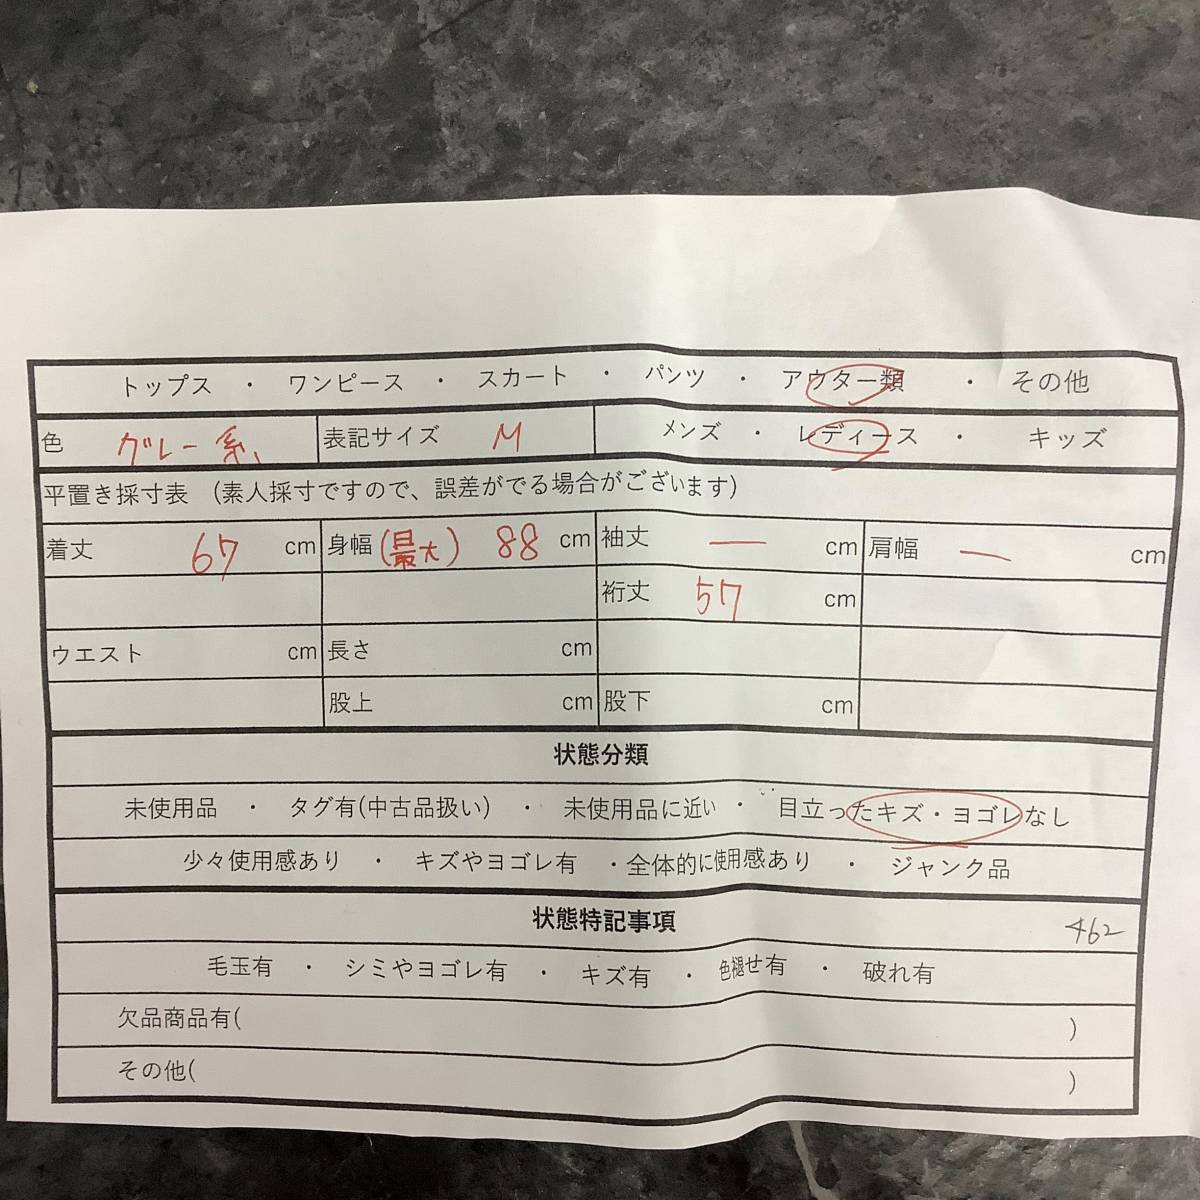 トップス ・ ワンピース ・ スカート ・ パンツ ・ アウター類 ・ その他
色 グレー系、 表記サイズ M メンズ ・ レディース ・ キッズ
平置き採寸表 (素人採寸ですので、誤差がでる場合がございます)
着丈 67 cm 身幅(最大) 88 cm 袖丈 — cm 肩幅 — cm
裄丈 57 cm
ウエスト cm 長さ cm
股上 cm 股下 cm
状態分類
未使用品 ・ タグ有(中古品扱い) ・ 未使用品に近い ・ 目立ったキズ・ヨゴレなし
少々使用感あり ・ キズやヨゴレ有 ・全体的に使用感あり ・ ジャンク品
状態特記事項 462
毛玉有 ・ シミやヨゴレ有 ・ キズ有 ・ 色褪せ有 ・ 破れ有
欠品商品有( )
その他( )